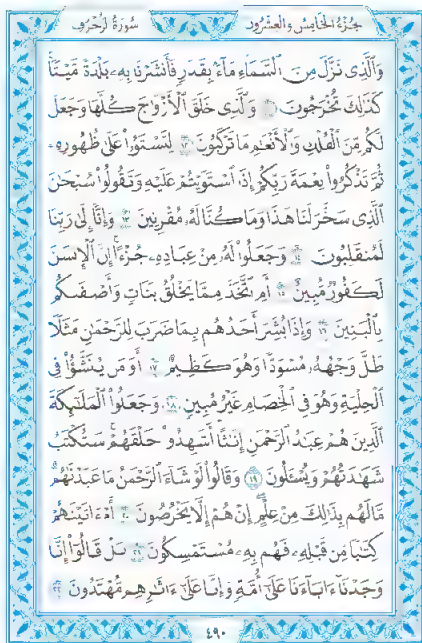 سُورَةُ الزُّخْرُفِ
الجُزْءُ الخَامِسُ وَالعِشْرُونَ
وَٱلَّذِى نَزَّلَ مِنَ ٱلسَّمَآءِ مَآءَۢ بِقَدَرٍ فَأَنشَرْنَا بِهِۦ بَلْدَةً مَّيْتًا
كَذَٰلِكَ تُخْرَجُونَ ١١ وَٱلَّذِى خَلَقَ ٱلْأَزْوَٰجَ كُلَّهَا وَجَعَلَ
لَكُم مِّنَ ٱلْفُلْكِ وَٱلْأَنْعَٰمِ مَا تَرْكَبُونَ ١٢ لِتَسْتَوُۥا۟ عَلَىٰ ظُهُورِهِۦ
ثُمَّ تَذْكُرُوا۟ نِعْمَةَ رَبِّكُمْ إِذَا ٱسْتَوَيْتُمْ عَلَيْهِ وَتَقُولُوا۟ سُبْحَٰنَ
ٱلَّذِى سَخَّرَ لَنَا هَٰذَا وَمَا كُنَّا لَهُۥ مُقْرِنِينَ ١٣ وَإِنَّآ إِلَىٰ رَبِّنَا
لَمُنقَلِبُونَ ١٤ وَجَعَلُوا۟ لَهُۥ مِنْ عِبَادِهِۦ جُزْءًا إِنَّ ٱلْإِنسَٰنَ
لَكَفُورٌ مُّبِينٌ ١٥ أَمِ ٱتَّخَذَ مِمَّا يَخْلُقُ بَنَاتٍ وَأَصْفَىٰكُم
بِٱلْبَنِينَ ١٦ وَإِذَا بُشِّرَ أَحَدُهُم بِمَا ضَرَبَ لِلرَّحْمَٰنِ مَثَلًا
ظَلَّ وَجْهُهُۥ مُسْوَدًّا وَهُوَ كَظِيمٌ ١٧ أَوَمَن يُنَشَّؤُا۟ فِى
ٱلْحِلْيَةِ وَهُوَ فِى ٱلْخِصَامِ غَيْرُ مُبِينٍ ١٨ وَجَعَلُوا۟ ٱلْمَلَٰٓئِكَةَ
ٱلَّذِينَ هُمْ عِبَٰدُ ٱلرَّحْمَٰنِ إِنَٰثًا أَشَهِدُوا۟ خَلْقَهُمْ سَتُكْتَبُ
شَهَٰدَتُهُمْ وَيُسْـَٔلُونَ ١٩ وَقَالُوا۟ لَوْ شَآءَ ٱلرَّحْمَٰنُ مَا عَبَدْنَٰهُم
مَّا لَهُم بِذَٰلِكَ مِنْ عِلْمٍ إِنْ هُمْ إِلَّا يَخْرُصُونَ ٢٠ أَمْ ءَاتَيْنَٰهُمْ
كِتَٰبًا مِّن قَبْلِهِۦ فَهُم بِهِۦ مُسْتَمْسِكُونَ ٢١ بَلْ قَالُوٓا۟ إِنَّا
وَجَدْنَآ ءَابَآءَنَا عَلَىٰٓ أُمَّةٍ وَإِنَّا عَلَىٰٓ ءَاثَٰرِهِم مُّهْتَدُونَ ٢٢
٤٩٠